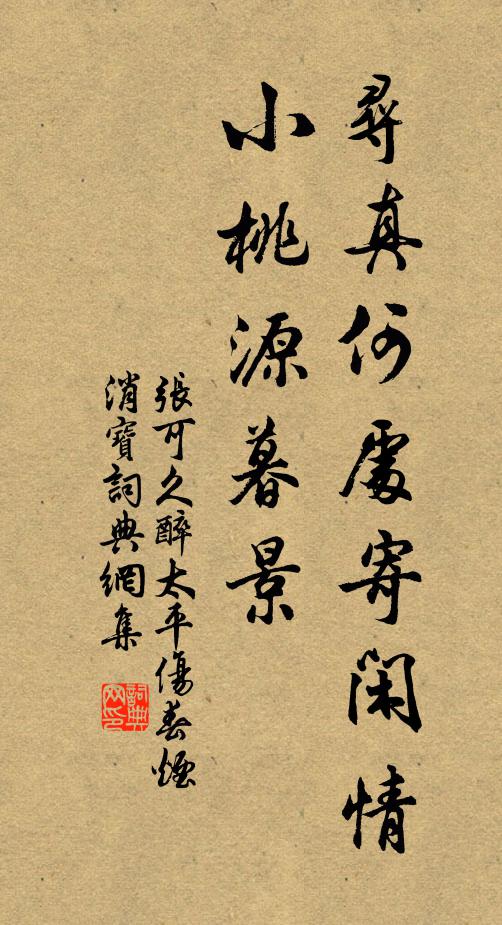 尋真何處寄閑情
小桃源暮景
張可久醉太平傷春煙
消寶詞典網集
詞典
网印